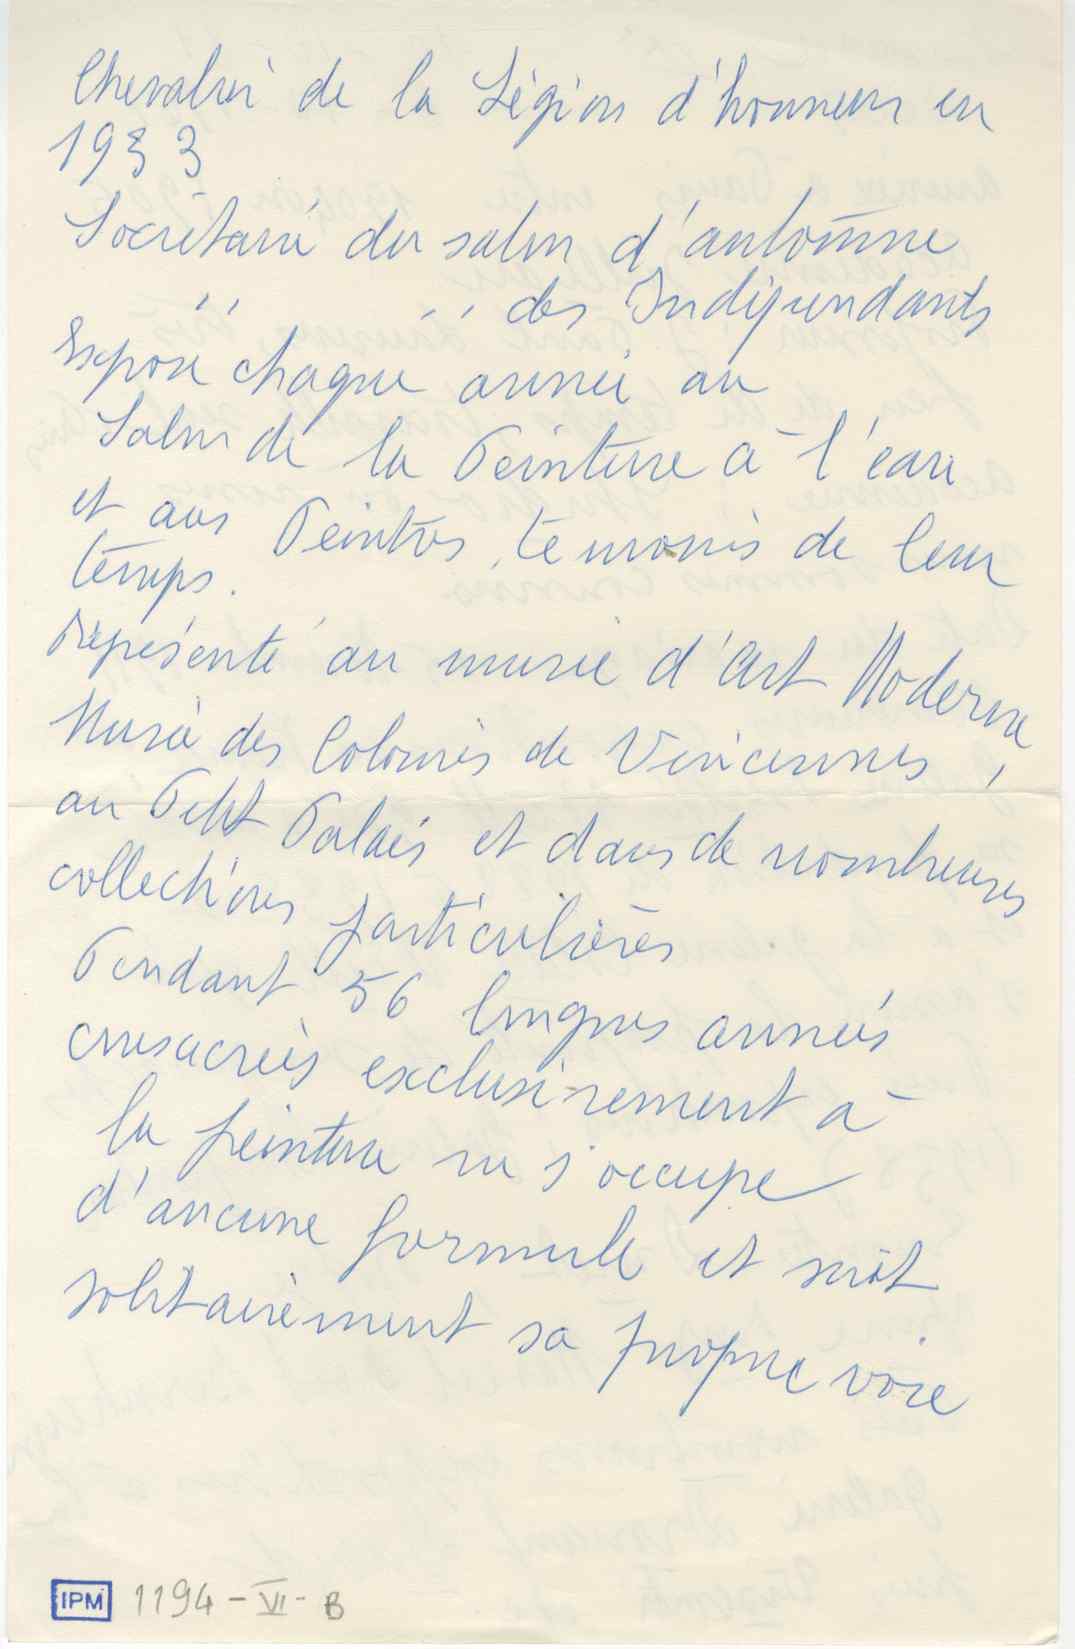 Chevalier de la Légion d'honneur en
1933
Sociétaire du salon d'automne
" " des Indépendants
Expose chaque année au
Salon de la Peinture à l'eau
et aux Peintres, témoins de leur
temps.
représenté au musée d'Art Moderne
Musée des Colonies de Vincennes,
au Petit Palais et dans de nombreuses
collections particulières
Pendant 56 longues années
consacrées exclusivement à
la peinture ne s'occupe
d'aucune formule et suit
solitairement sa propre voie
IPM 1194-VI-B